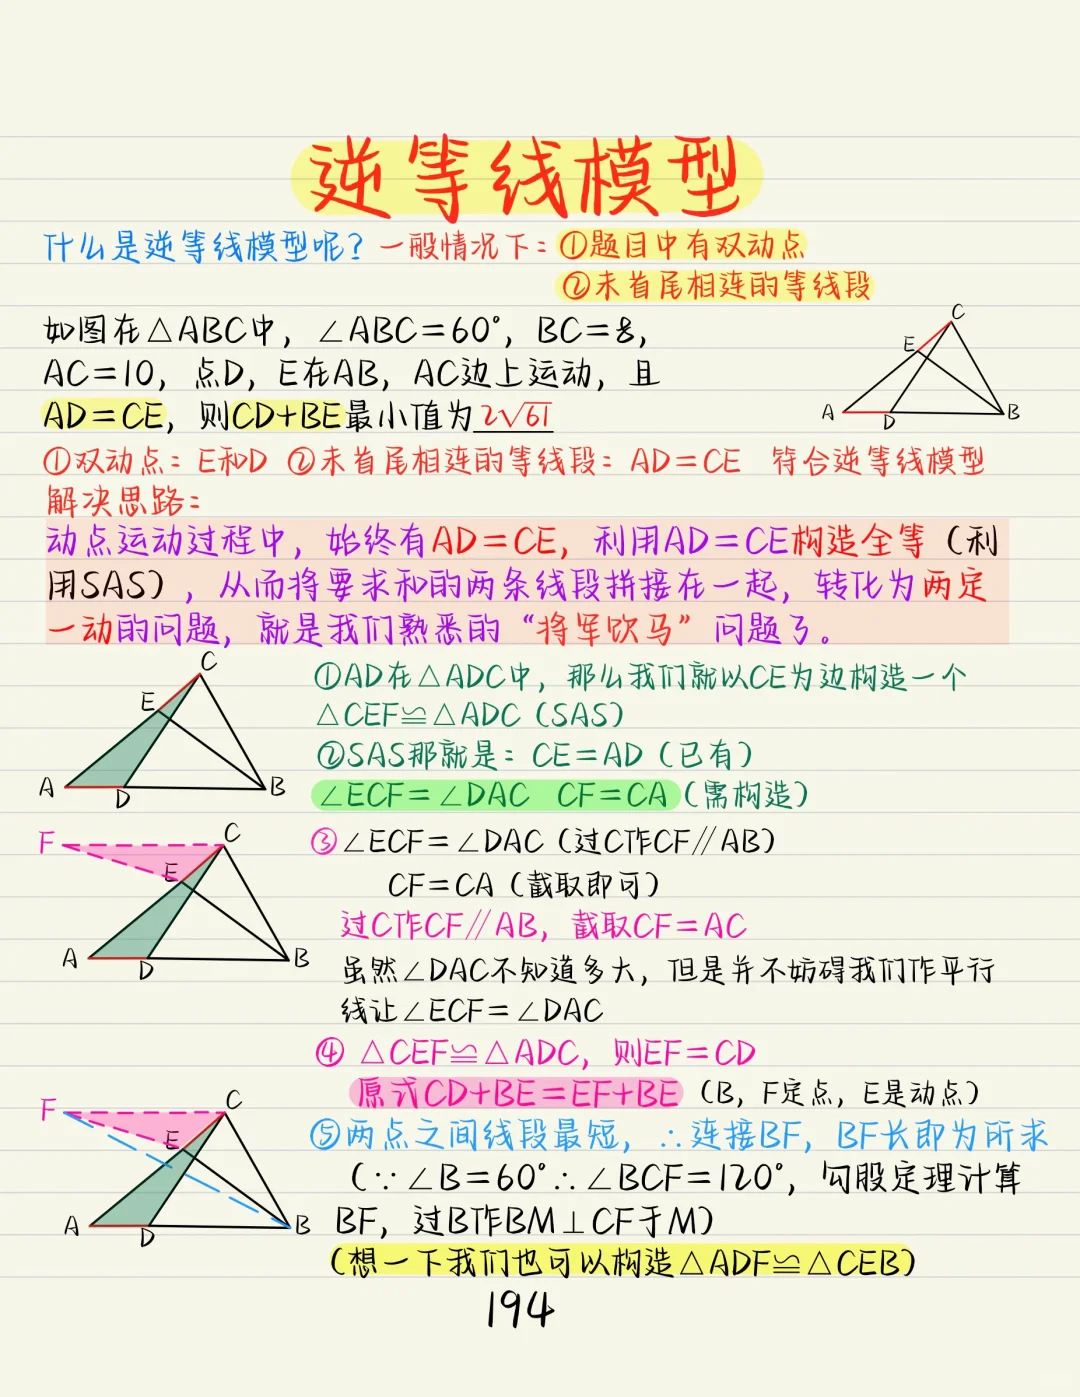 逆等线模型
什么是逆等线模型呢？一般情况下：①题目中有双动点
②未首尾相连的等线段
如图在△ABC中，∠ABC=60°，BC=8，
AC=10，点D，E在AB，AC边上运动，且
AD=CE，则CD+BE最小值为2√61
C
E
A
D
B
①双动点：E和D ②未首尾相连的等线段：AD=CE 符合逆等线模型
解决思路：
动点运动过程中，始终有AD=CE，利用AD=CE构造全等（利
用SAS），从而将要求和的两条线段拼接在一起，转化为两定
一动的问题，就是我们熟悉的“将军饮马”问题了。
C
E
A
D
B
①AD在△ADC中，那么我们就以CE为边构造一个
△CEF≌△ADC（SAS）
②SAS那就是：CE=AD（已有）
∠ECF=∠DAC CF=CA（需构造）
F
C
E
A
D
B
③∠ECF=∠DAC（过C作CF∥AB）
CF=CA（截取即可）
过C作CF∥AB，截取CF=AC
虽然∠DAC不知道多大，但是并不妨碍我们作平行
线让∠ECF=∠DAC
④ △CEF≌△ADC，则EF=CD
原式CD+BE=EF+BE（B，F定点，E是动点）
F
C
E
A
D
B
⑤两点之间线段最短，∴连接BF，BF长即为所求
（∵∠B=60°∴∠BCF=120°，勾股定理计算
BF，过B作BM⊥CF于M）
（想一下我们也可以构造△ADF≌△CEB）
194